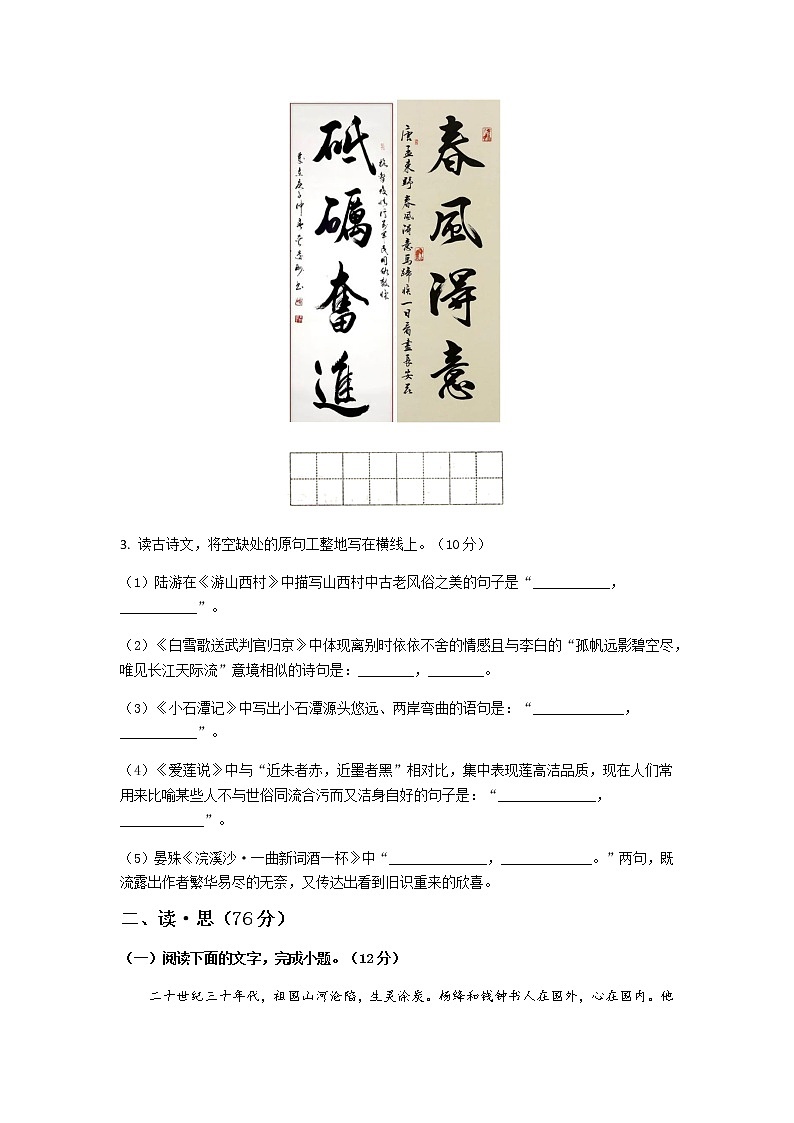 春風得意
唐孟東野 春風得意馬蹄疾一日看盡長安花
砥礪奮進
3. 读古诗文，将空缺处的原句工整地写在横线上。（10 分）
（1）陆游在《游山西村》中描写山西村中古老风俗之美的句子是“___________，
___________”。
（2）《白雪歌送武判官归京》中体现离别时依依不舍的情感且与李白的“孤帆远影碧空尽，
唯见长江天际流”意境相似的诗句是：________，________。
（3）《小石潭记》中写出小石潭源头悠远、两岸弯曲的语句是：“_____________，
___________”。
（4）《爱莲说》中与“近朱者赤，近墨者黑”相对比，集中表现莲高洁品质，现在人们常
用来比喻某些人不与世俗同流合污而又洁身自好的句子是：“______________，
____________”。
（5）晏殊《浣溪沙·一曲新词酒一杯》中“______________，_____________。”两句，既
流露出作者繁华易尽的无奈，又传达出看到旧识重来的欣喜。
二、读·思（76 分）
（一）阅读下面的文字，完成小题。（12 分）
二十世纪三十年代，祖国山河沦陷，生灵涂炭。杨绛和钱钟书人在国外，心在国内。他